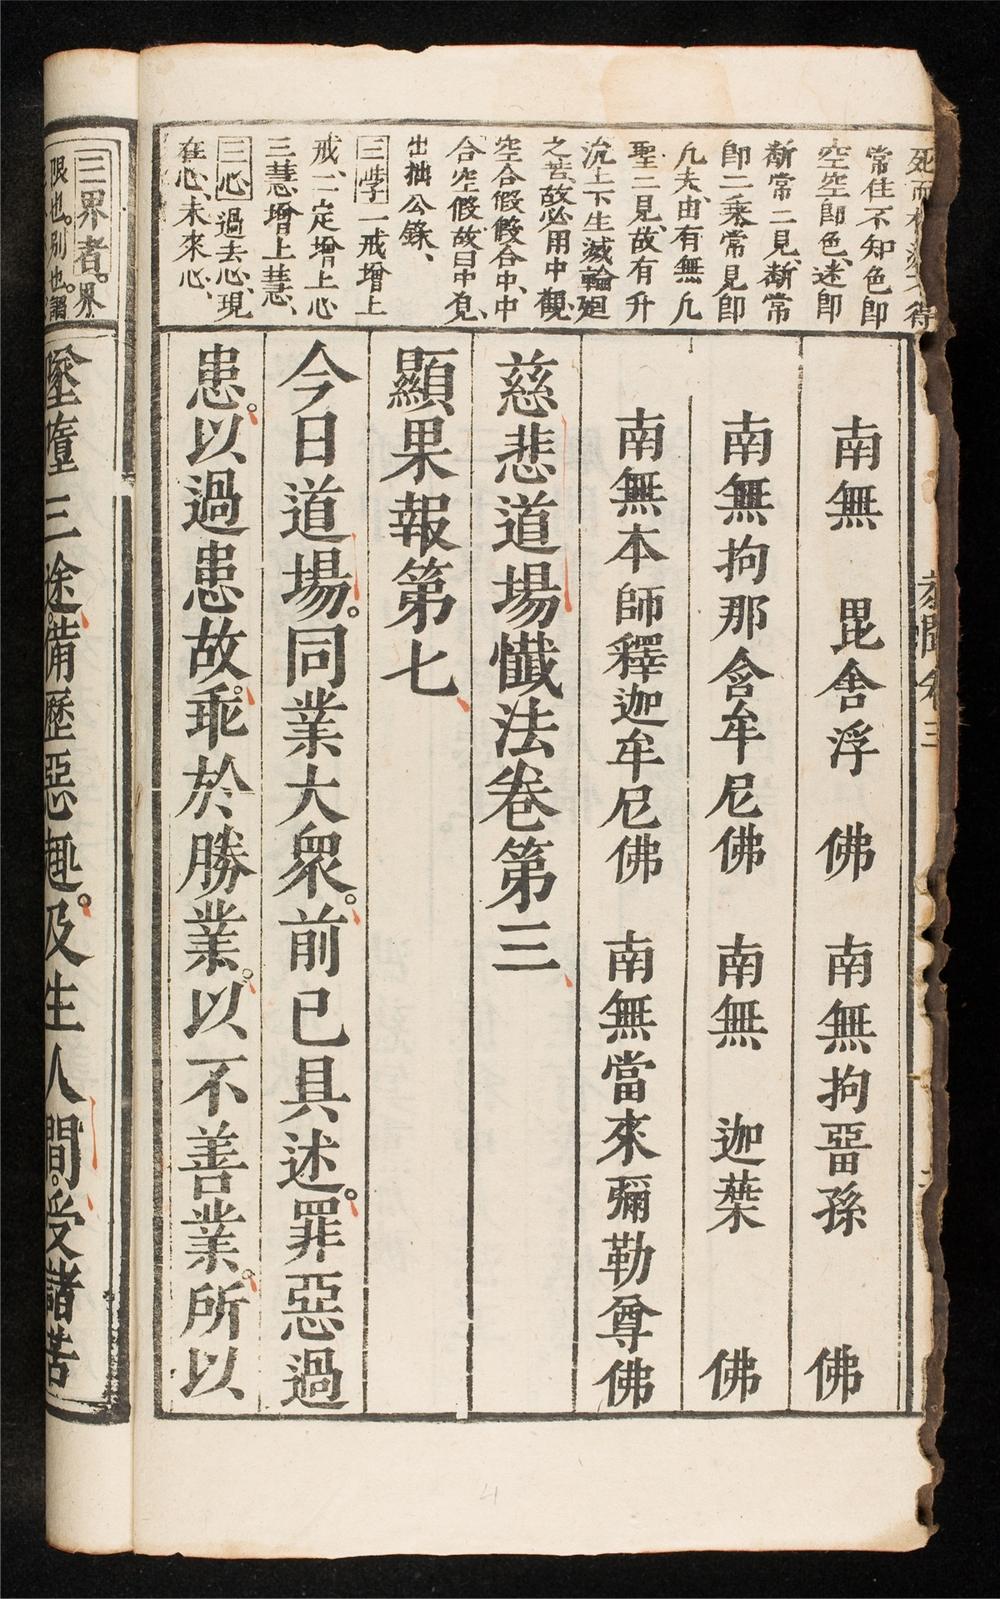 常住不知色即
空空即色迷即
斷常二見斷常
即二乘常見即
凡夫由有無凡
聖二見故有升
沉上下生滅輪廻
之苦故必用中觀
空合假假合中中
合空假故曰中觀
出拙公錄
三學一戒增上
戒二定增上心
三慧增上慧
三心過去心現
在心未來心
南無毘舍浮佛 南無拘畱孫佛
南無拘那含牟尼佛 南無迦葉佛
南無本師釋迦牟尼佛 南無當來彌勒尊佛
慈悲道場懺法卷第三
顯果報第七
今日道場。同業大眾。前已具述。罪惡過
患。以過患故。乖於勝業。以不善業。所以
三界者。界
限也。別也。謂
墜墮三途。備歷惡趣。及生人間。受諸苦